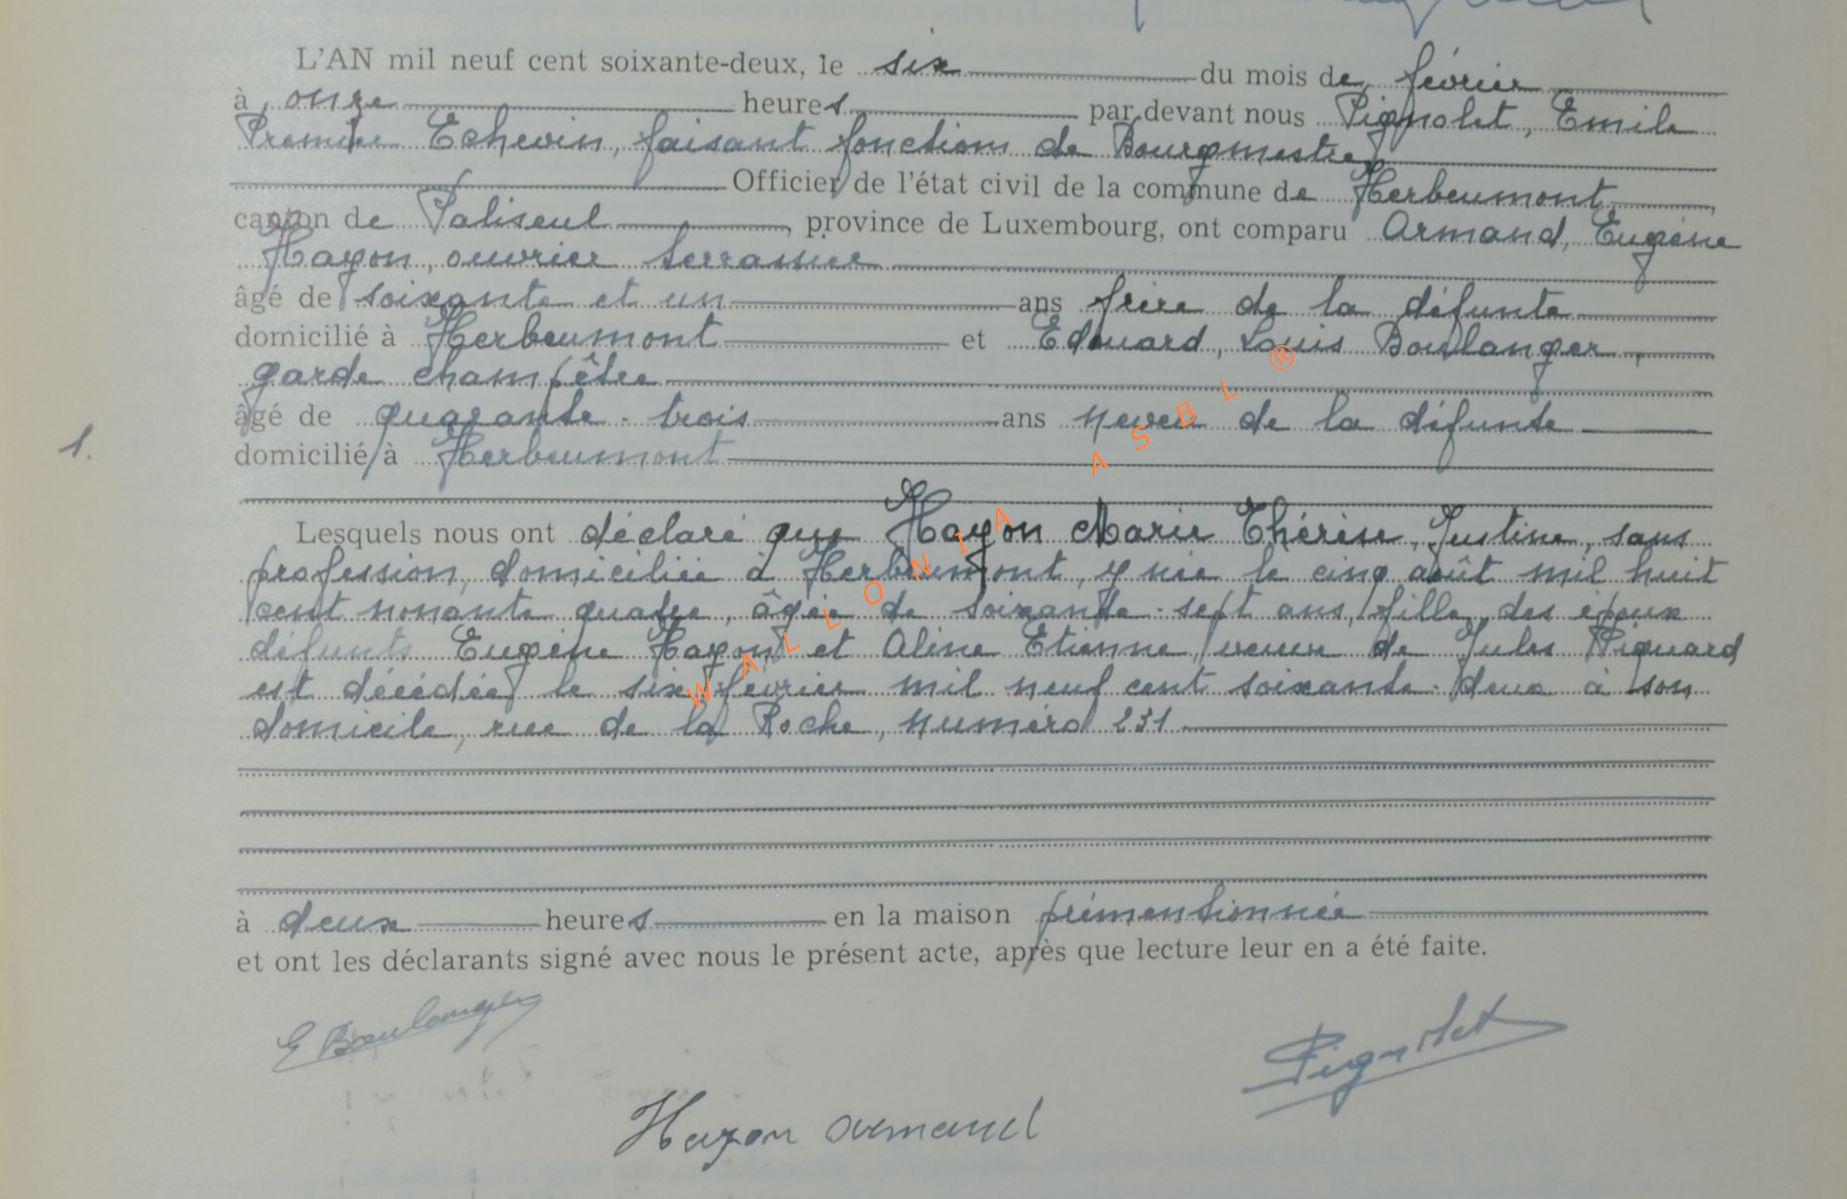 L'AN mil neuf cent soixante-deux, le six du mois de février
à onze heures par devant nous Pignolet, Emile
Premier Echevin, faisant fonctions de Bourgmestre
Officier de l'état civil de la commune de Herbeumont
canton de Paliseul, province de Luxembourg, ont comparu Armand, Eugène
Hayon, ouvrier terrassier
âgé de soixante et un ans frère de la défunte
domicilié à Herbeumont et Edouard, Louis Boulanger,
garde champêtre
âgé de quarante-trois ans neveu de la défunte
1.
domicilié à Herbeumont
Lesquels nous ont déclaré que Hayon Marie Thérèse, Justine, sans
profession, domiciliée à Herbeumont, y née le cinq août mil huit
cent nonante quatre, âgée de soixante-sept ans, fille des époux
défunts Eugène Hayon et Aline Etienne, veuve de Jules Piquard
est décédée le six février mil neuf cent soixante-deux à son
domicile, rue de la Roche, numéro 231
à deux heures en la maison prémentionnée
et ont les déclarants signé avec nous le présent acte, après que lecture leur en a été faite.
E Boulanger
Pignolet
Hayon Armand
WALLONIA ASBL ®